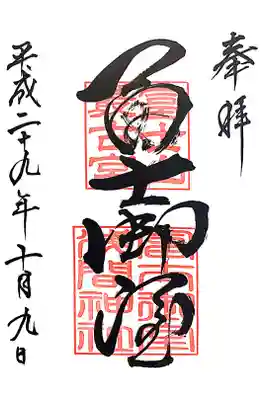 奉拝
冨士御室
平成二十九年十月九日